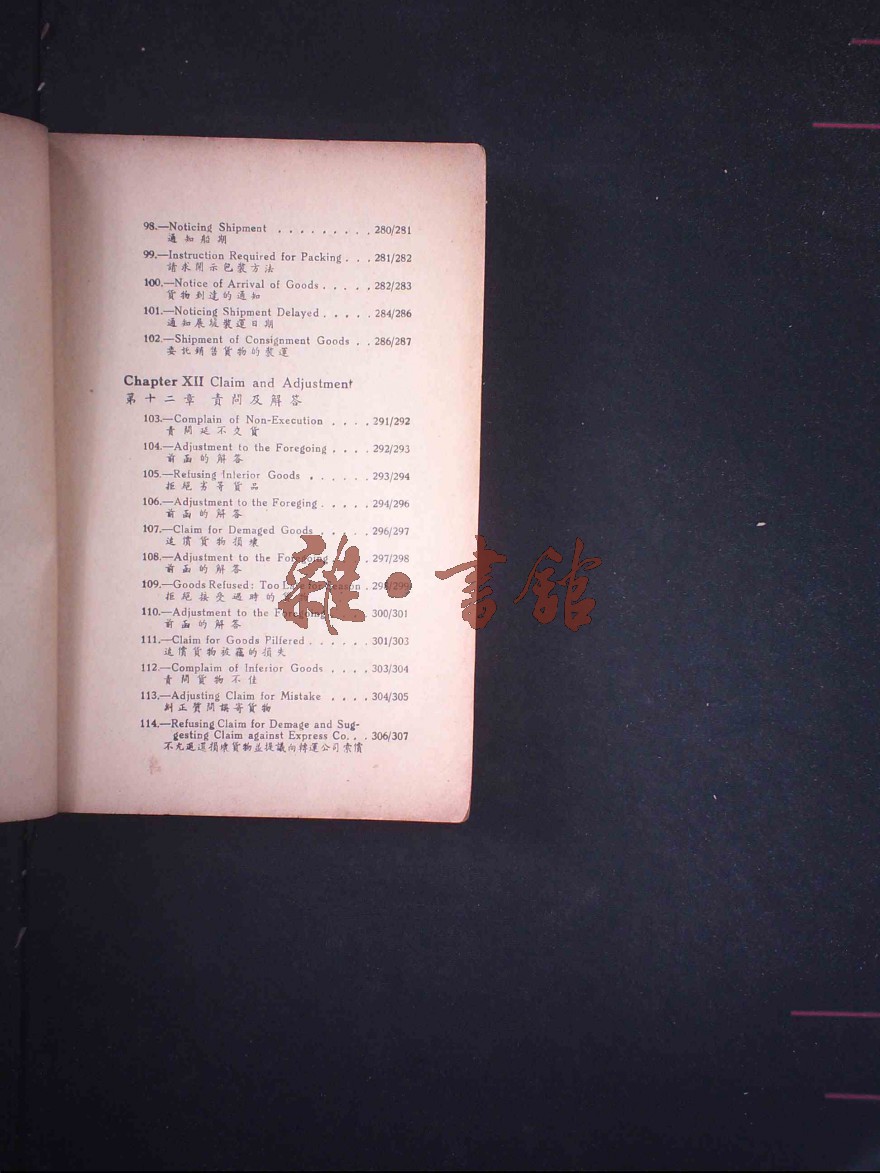 98.—Noticing Shipment . . . . . . . . . 280/281
通知船期
99.—Instruction Required for Packing . . . 281/282
請求開示包裝方法
100.—Notice of Arrival of Goods . . . . . 282/283
貨物到達的通知
101.—Noticing Shipment Delayed . . . . . 284/286
通知展坂裝運日期
102.—Shipment of Consignment Goods . . 286/287
委託銷售貨物的裝運
Chapter XII Claim and Adjustment
第十二章 責問及解答
103.—Complain of Non-Execution . . . . 291/292
責問延不交貨
104.—Adjustment to the Foregoing . . . . 292/293
前函的解答
105.—Refusing Inferior Goods . . . . . . 293/294
拒絕劣等貨品
106.—Adjustment to the Foreging . . . . . 294/296
前函的解答
107.—Claim for Demaged Goods . . . . . 296/297
追償貨物損壞
108.—Adjustment to the Foregoing . . . . 297/298
前函的解答
109.—Goods Refused: Too Late for Season . 298/299
拒絕接受過時的貨物
110.—Adjustment to the Foregoing . . . . 300/301
前函的解答
111.—Claim for Goods Pilfered . . . . . . 301/303
追償貨物被竊的損失
112.—Complaim of Inferior Goods . . . . 303/304
責問貨物不佳
113.—Adjusting Claim for Mistake . . . . 304/305
糾正質問誤寄貨物
114.—Refusing Claim for Demage and Sug-
gesting Claim against Express Co. . . 306/307
不允退還損壞貨物並提議向轉運公司索償
雜·書館